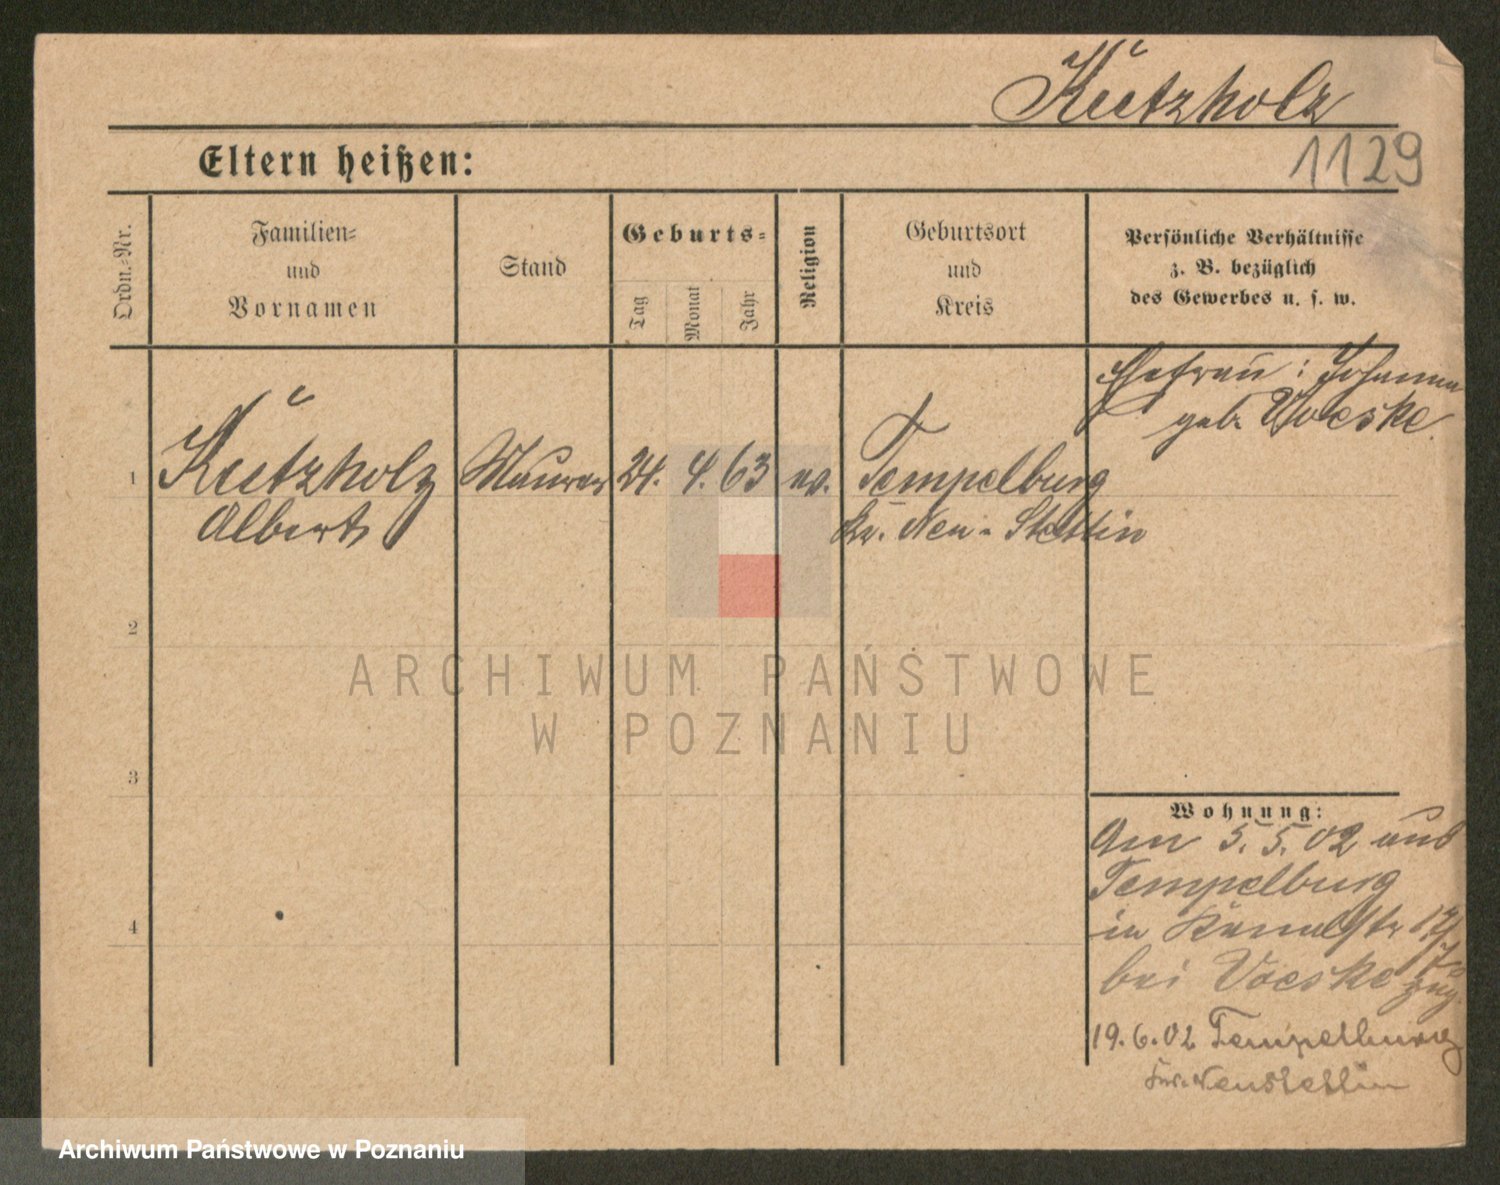 Kutzholz
1129
Eltern heißen:
Ordn.-Nr.
Familien-
und
Vornamen
Stand
Geburts-
Tag
Monat
Jahr
Religion
Geburtsort
und
Kreis
Persönliche Verhältnisse
z. B. bezüglich
des Gewerbes u. s. w.
Ehefrau: Johanna
geb. Voeske
1 Kutzholz Maurer 24. 4. 63 ev. Tempelburg
Albert Kr. Neu-Stettin
2
3
4
Wohnung:
Am 5.5.02 aus
Tempelburg
in Kanalstr 17
bei Voeske zug.
19.6.02 Tempelburg
Kr. Neustettin
ARCHIWUM PAŃSTWOWE
W POZNANIU
Archiwum Państwowe w Poznaniu